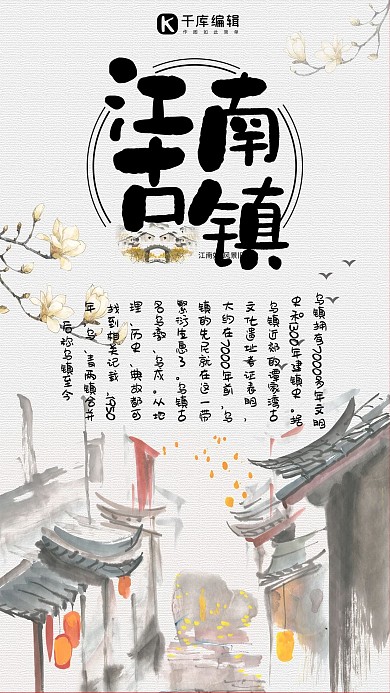 千库编辑
作图如此简单
江南
古镇
乌镇拥有7000多年文明
史和1300年建镇史。据
乌镇近郊的谭家湾古
文化遗址考证表明，
大约在7000年前，乌
镇的先民就在这一带
繁衍生息了。乌镇古
名乌墩、乌戍。从地
理、历史、典故都可
找到相关记载，1950
年，乌、青两镇合并
后称乌镇至今